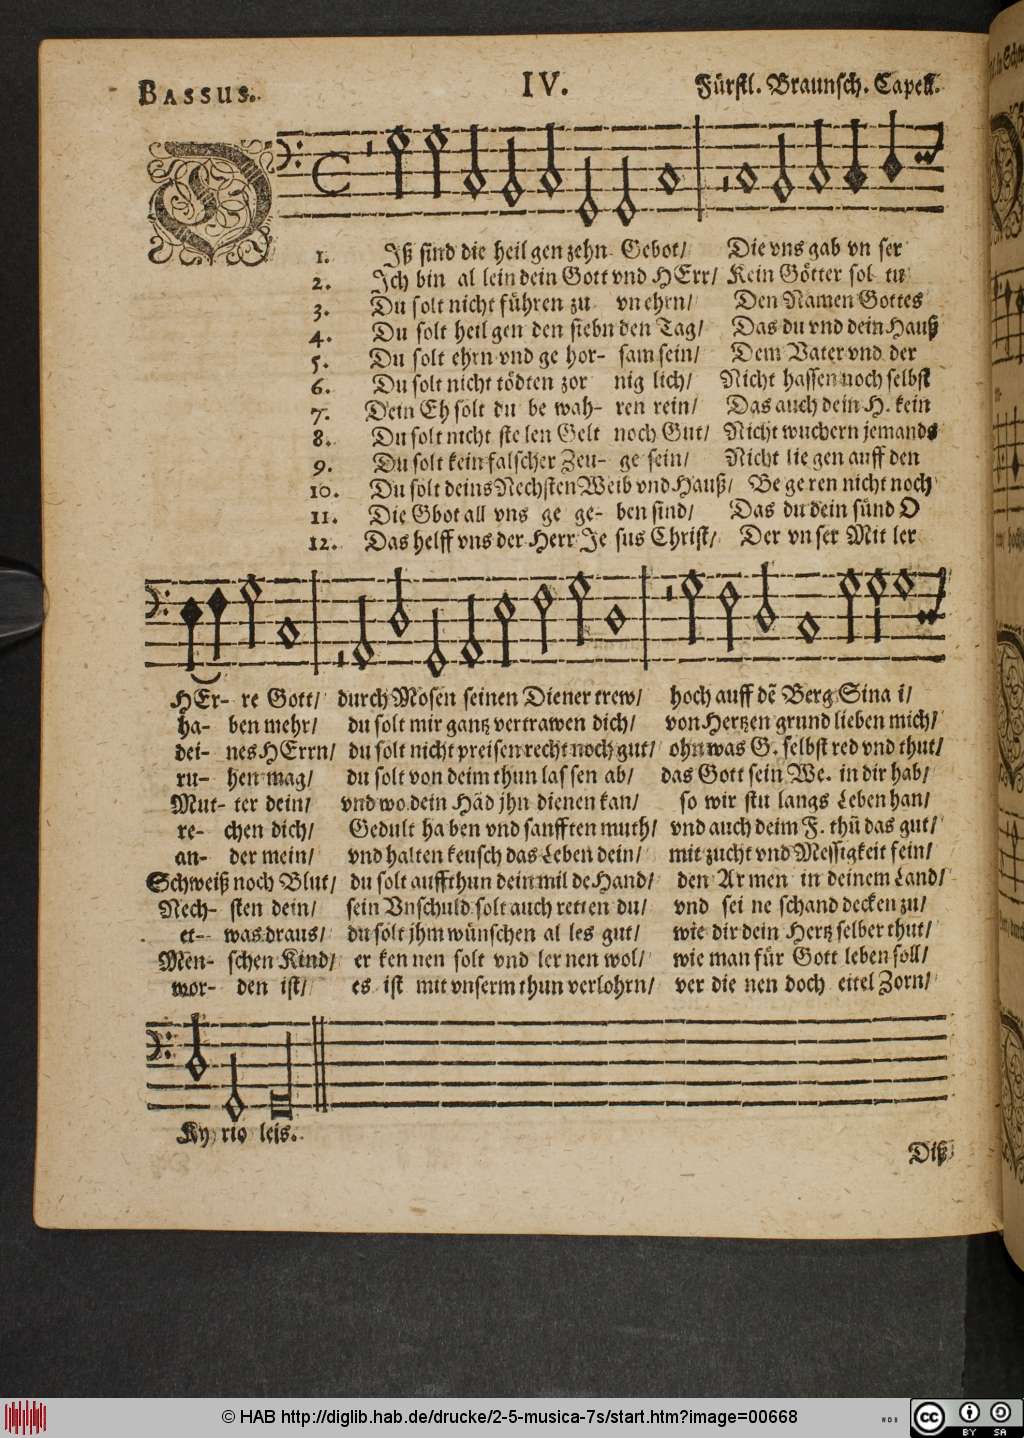 BASSUS. IV. Fürstl. Braunsch. Capell.
D
1. Jß sind die heil gen zehn Gebot/ Die vns gab vn ser
2. Jch bin al lein dein Gott vnd HErr/ Kein Götter sol tu
3. Du solt nicht führen zu vnehrn/ Den Namen Gottes
4. Du solt heil gen den siebn den Tag/ Das du vnd dein Hauß
5. Du solt ehrn vnd ge hor- sam sein/ Dem Vater vnd der
6. Du solt nicht tödten zor nig lich/ Nicht hassen noch selbst
7. Dein Eh solt du be wah- ren rein/ Das auch dein H. kein
8. Du solt nicht ste len Gelt noch Gut/ Nicht wuchern jemands
9. Du solt kein falscher Zeu- ge sein/ Nicht lie gen auff den
10. Du solt deins Nechsten Weib vnd Hauß/ Be ge ren nicht noch
11. Die Gbot all vns ge ge- ben sind/ Das du dein sünd O
12. Das helff vns der Herr Je sus Christ/ Der vn ser Mit ler
HEr- re Gott/ durch Mosen seinen Diener trew/ hoch auff dẽ Berg Sina i/
ha- ben mehr/ du solt mir gantz vertrawen dich/ von Hertzen grund lieben mich/
dei- nes HErrn/ du solt nicht preisen recht noch gut/ ohn was G. selbst red vnd thut/
ru- hen mag/ du solt von deim thun las sen ab/ das Gott sein We. in dir hab/
Mut- ter dein/ vnd wo dein Häd jhn dienen kan/ so wir stu langs Leben han/
re- chen dich/ Gedult ha ben vnd sanfften muth/ vnd auch deim F. thũ das gut/
an- der mein/ vnd halten keusch das Leben dein/ mit zucht vnd Messigkeit fein/
Schweiß noch Blut/ du solt auffthun dein mil de Hand/ den Ar men in deinem Land/
Nech- sten dein/ sein Vnschuld solt auch retten du/ vnd sei ne schand decken zu/
et- was draus/ du solt jhm wünschen al les gut/ wie dir dein Hertz selber thut/
Men- schen Kind/ er ken nen solt vnd ler nen wol/ wie man für Gott leben soll/
wor- den ist/ es ist mit vnserm thun verlohrn/ ver die nen doch eitel Zorn/
Ky rio leis.
Diß
© HAB http://diglib.hab.de/drucke/2-5-musica-7s/start.htm?image=00668
cc BY SA